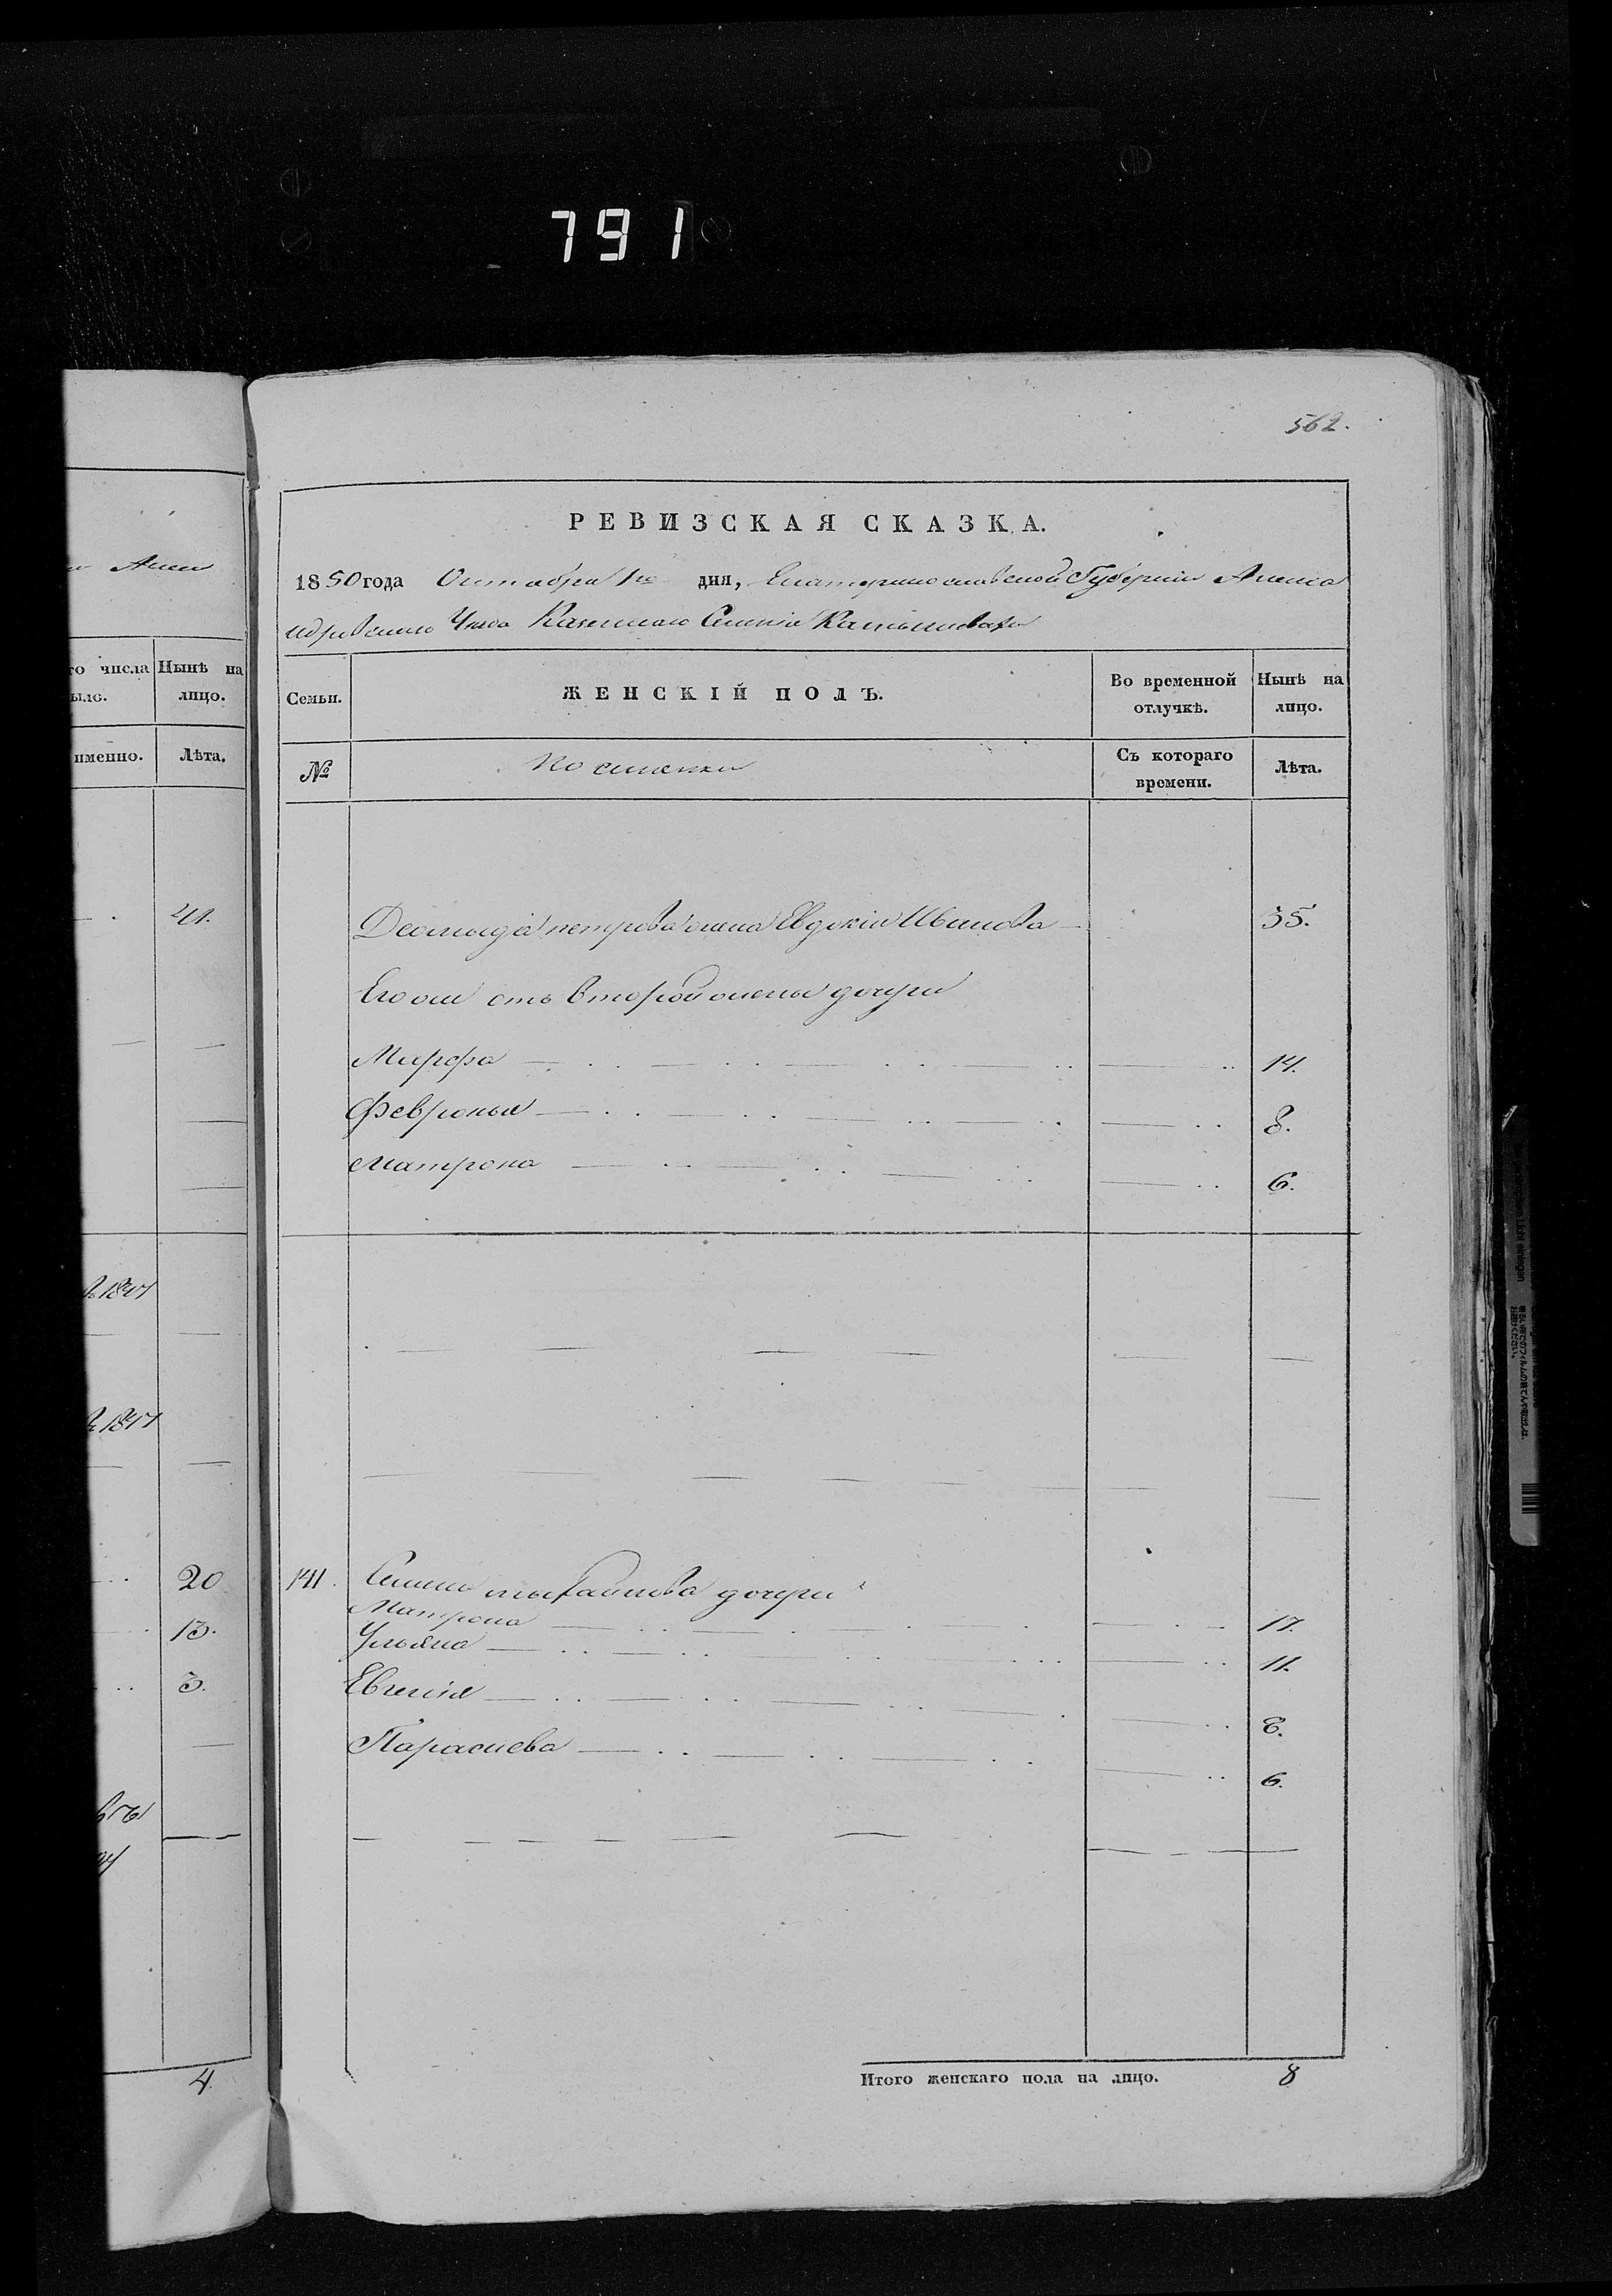 791
562.
РЕВИЗСКАЯ СКАЗКА.
1850 года Октября 1го дня, Екатеринославской Губернии Алекса
ндровского Уезда Казенного Селения
го числа
было.
Нынѣ на лицо.
именно.
Лѣта.
Семьи.
ЖЕНСКІЙ ПОЛЪ.
Во временной отлучкѣ.
Нынѣ на лицо.
№
Съ котораго времени.
Лѣта.
41.
петрова жена Евдокія Иванова 35.
Его же отъ второй жены дочери
Марфа 14.
Февронья 8.
Матрона 6.
1847
1847
20
13.
3.
141. Семена михайлова дочери
Матрона 17.
Ульяна 11.
Евгенія 8.
Параскева 6.
4.
Итого женскаго пола на лицо. 8